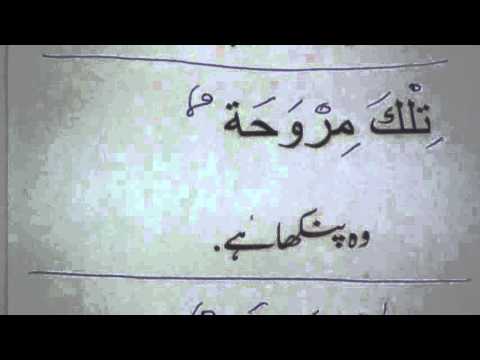 تِلْكَ مِرْوَحَة
وہ پنکھا ہے.